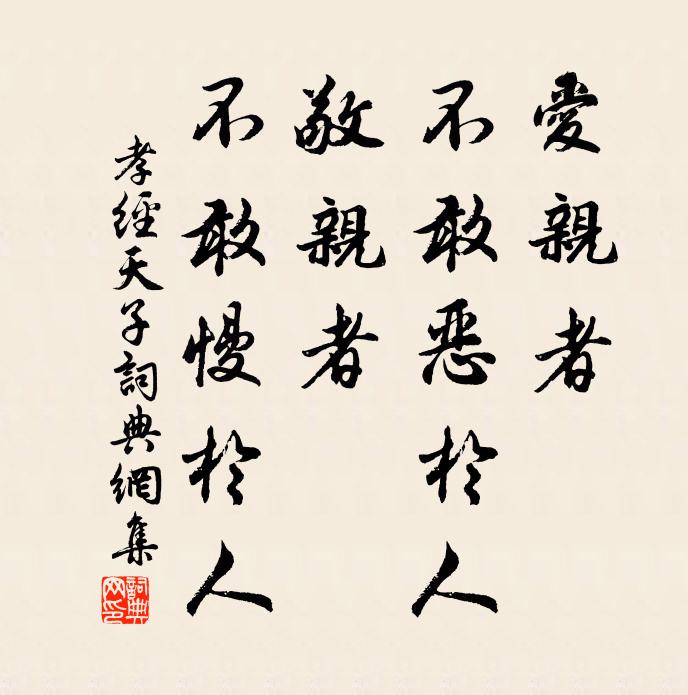 愛親者
不敢惡於人
敬親者
不敢慢於人
孝經天子詞典網集
詞典網印